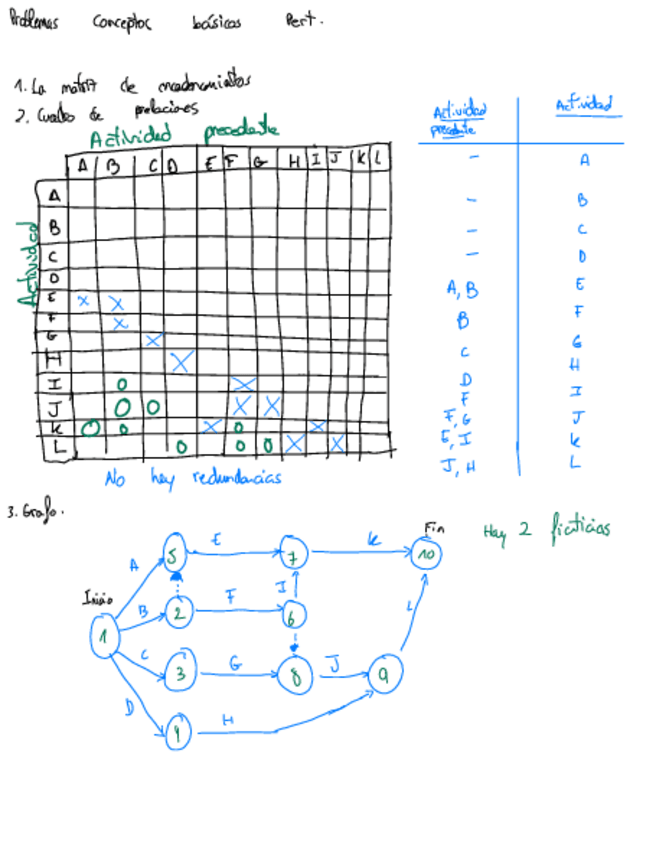 Problemas Conceptos básicos Pert.
1. La matriz de encadenamientos
2. Cuadro de prelaciones
Actividad precedente
A B C D E F G H I J K L
Actividad
A
B
C
D
E x x
F x
G x
H x
I o x
J o o x x
K o o x o x
L o o o x x
No hay redundancias
Actividad precedente Actividad
- A
- B
- C
- D
A, B E
B F
C G
D H
F I
F, G J
E, I K
J, H L
3. Grafo.
Inicio
Fin
Hay 2 ficticios
1 A 5 E 7 K 10
B 2 F 6 I
C 3 G 8 J 9 L
D 4 H